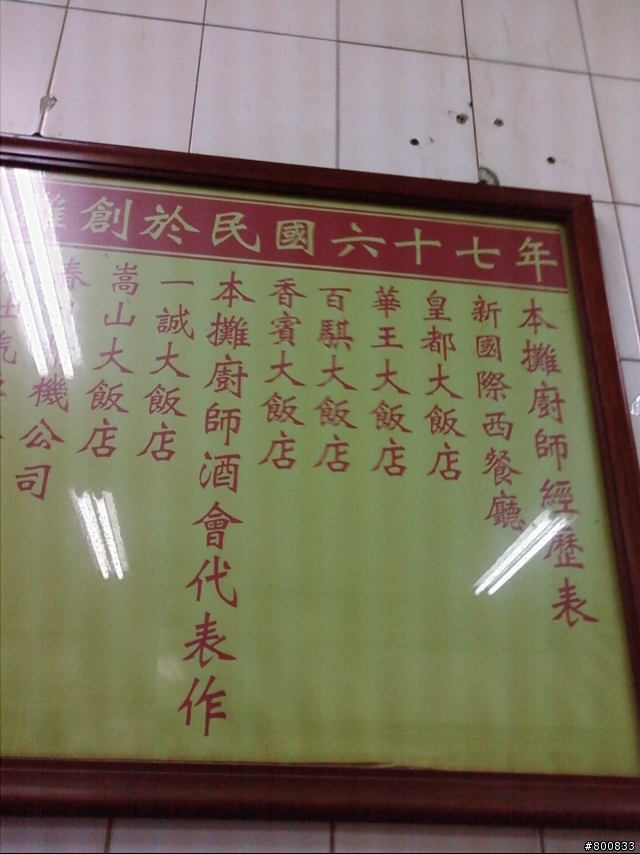 攤創於民國六十七年
本攤廚師經歷表
新國際西餐廳
皇都大飯店
華王大飯店
百騏大飯店
香賓大飯店
本攤廚師酒會代表作
一誠大飯店
嵩山大飯店
機公司
#800833